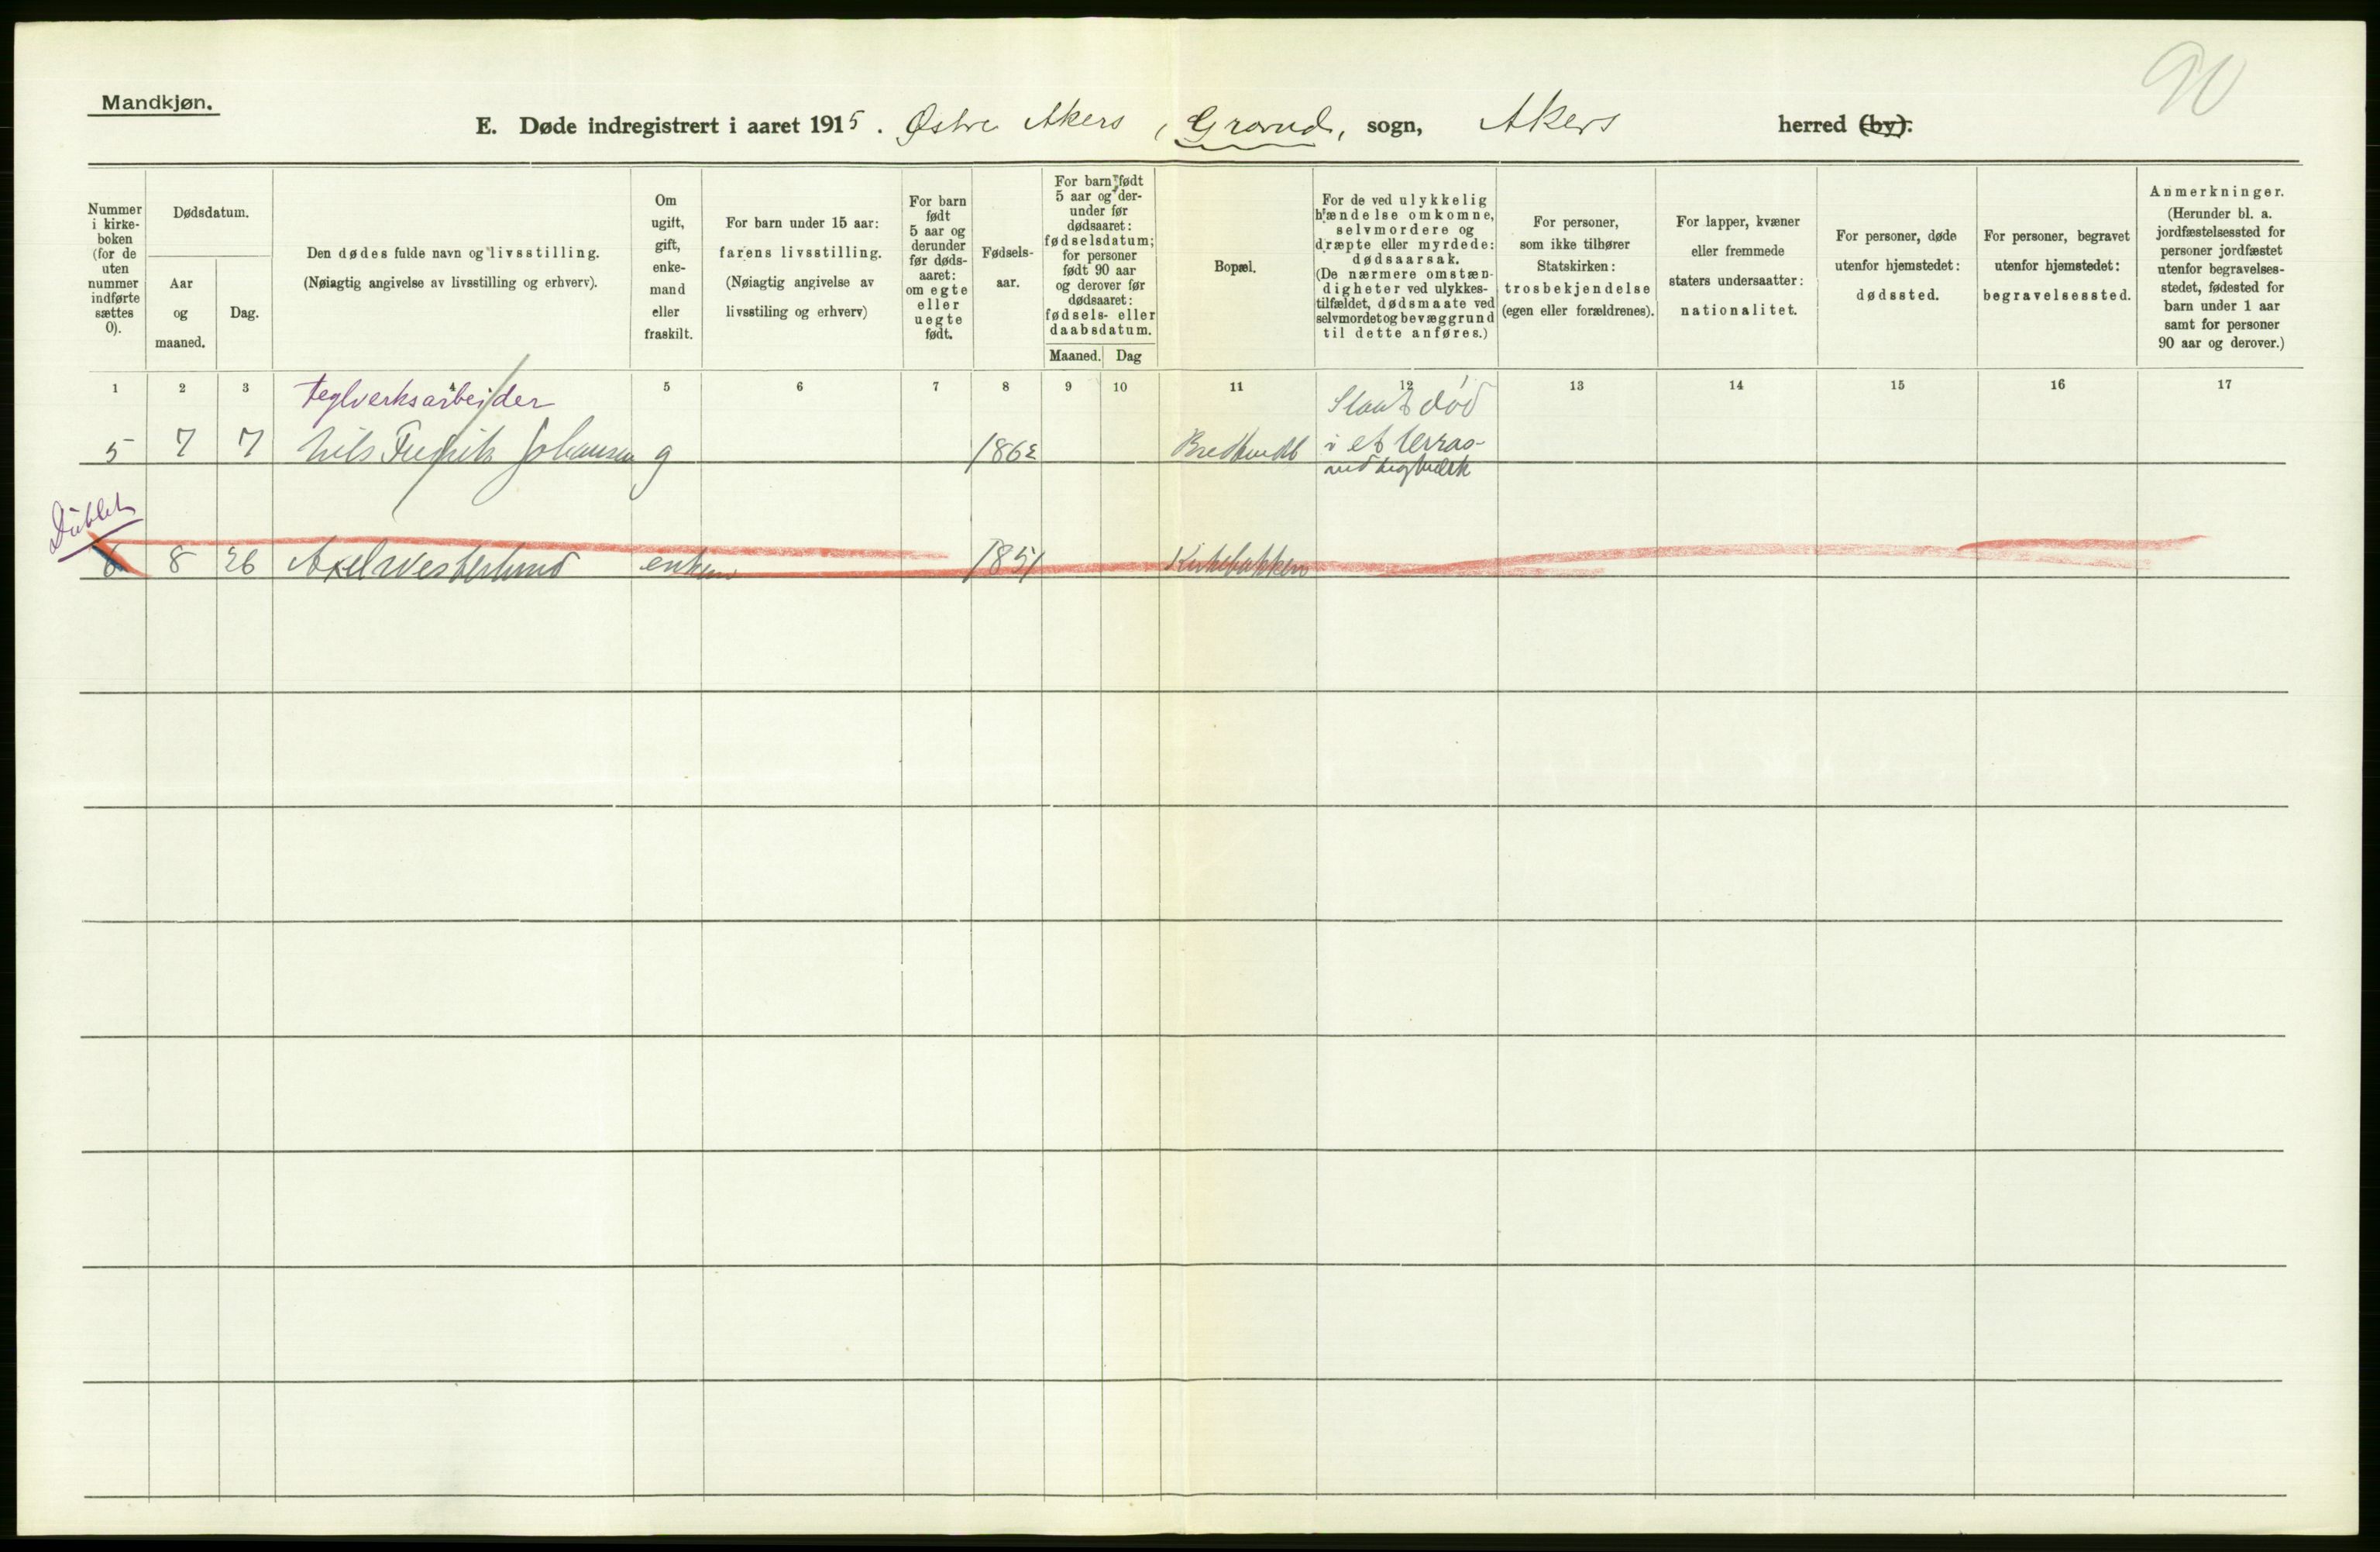 90
Mandkjøn.
E. Døde indregistrert i aaret 1915. Østre Akers, Grorud, sogn, Akers herred (by).
Nummer i kirke-boken (for de uten nummer indførte sættes 0).
Dødsdatum.
Aar og maaned.
Dag.
Den dødes fulde navn og livsstilling.
(Nøiagtig angivelse av livsstilling og erhverv).
Om ugift, gift, enke-mand eller fraskilt.
For barn under 15 aar: farens livsstilling. (Nøiagtig angivelse av livsstiling og erhverv)
For barn født 5 aar og derunder før døds-aaret: om egte eller uegte født.
Fødsels-aar.
For barn født 5 aar og der-under før dødsaaret: fødselsdatum; for personer født 90 aar og derover før dødsaaret: fødsels- eller daabsdatum.
Maaned. Dag
Bopæl.
For de ved ulykkelig hændelse omkomne, selvmordere og dræpte eller myrdede: dødsaarsak. (De nærmere omstæn-digheter ved ulykkes-tilfældet, dødsmaate ved selvmordet og bevæggrund til dette anføres.)
For personer, som ikke tilhører Statskirken: trosbekjendelse (egen eller forældrenes).
For lapper, kvæner eller fremmede staters undersaatter: nationalitet.
For personer, døde utenfor hjemstedet: dødssted.
For personer, begravet utenfor hjemstedet: begravelsessted.
Anmerkninger. (Herunder bl. a. jordfæstelsessted for personer jordfæstet utenfor begravelses-stedet, fødested for barn under 1 aar samt for personer 90 aar og derover.)
1 2 3 4 5 6 7 8 9 10 11 12 13 14 15 16 17
Teglverksarbeider
Slaat død
5 7 7 Nils Fredrik Johansen g 1862 i et
ved teglverk
Dublet
6 8 26 Axel Westerlund enkem 1851 Kirkebakken